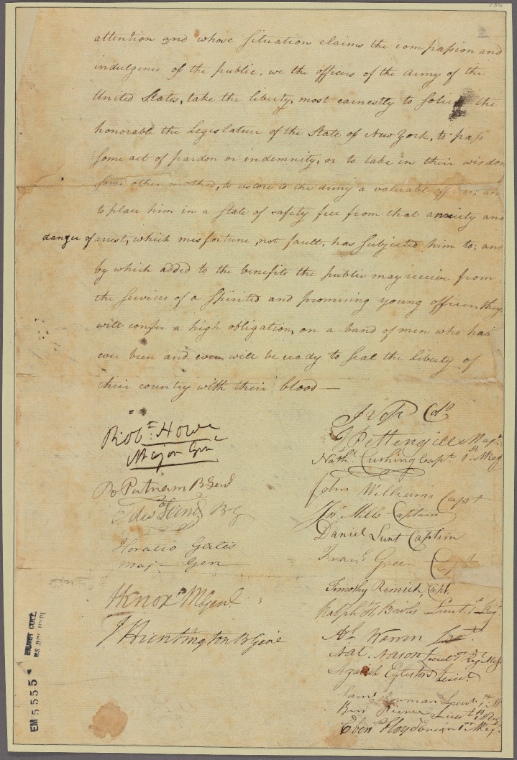 attention and whose situation claims the compassion and
indulgence of the public, we the officers of the Army of the
United States, take the liberty, most earnestly to the
honorable the Legislature of the State of New York, to pass
some act of pardon or indemnity, or to take in their wisdom
some other method, to restore to the army a valuable
to place him in a state of safety free from that anxiety and
danger of arrest, which misfortune, not fault, has subjected him to; and
by which added to the benefits the public may receive from
the services of a spirited and promising young officer they
will confer a high obligation, on a band of men who has
ever been and ever will be ready to seal the liberty of
their country with their blood —
Robt. Howe
Major Genl
R Putnam B Genl
Edwd Hand B G
Horatio Gates
Maj Gen
HKnox M Genl
J Huntington B Genl
Col
Pettengill Majr
Nathl Cushing Capt
John Williams Capt
Mills Captain
Daniel Lunt Captain
Francs Green Capt
Timothy Remick, Capt
Ralph H Bowles Lieut
Nat Nason Lieut
Lieut
Saml
Benj Pierce Lieut
Eben
EM 5555